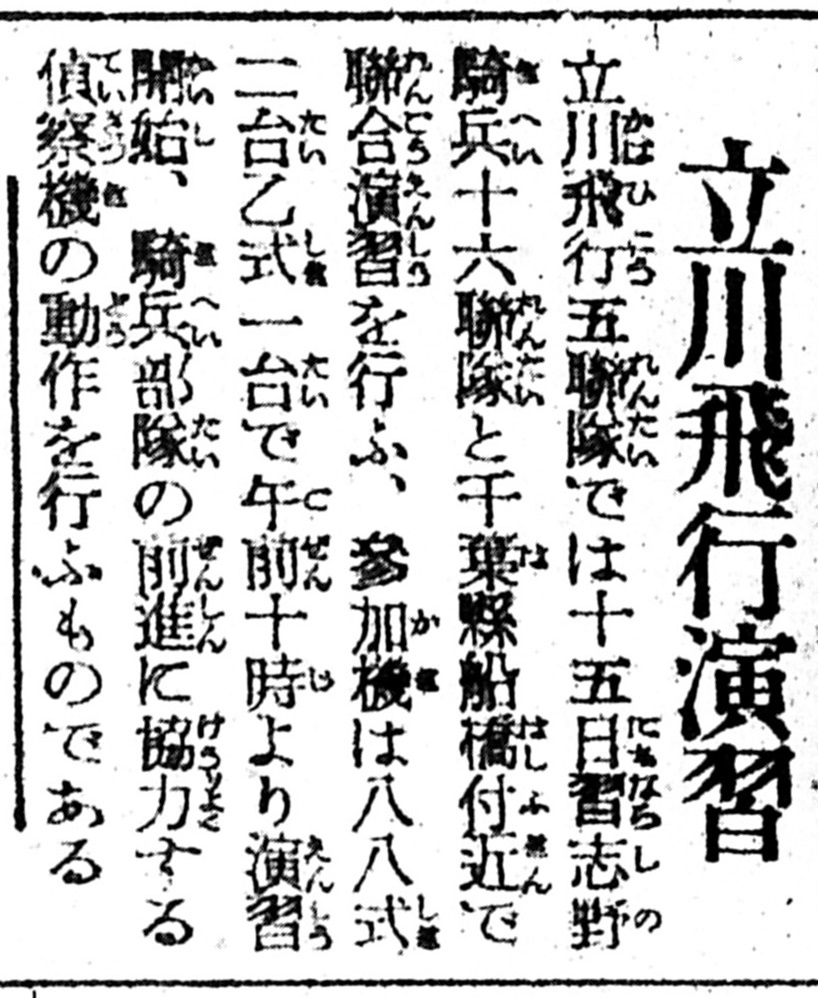 立川飛行演習
立川飛行五聯隊では十五日習志野
騎兵十六聯隊と千葉縣船橋付近で
聯合演習を行ふ、參加機は八八式
二台乙式一台で午前十時より演習
開始、騎兵部隊の前進に協力する
偵察機の動作を行ふものである